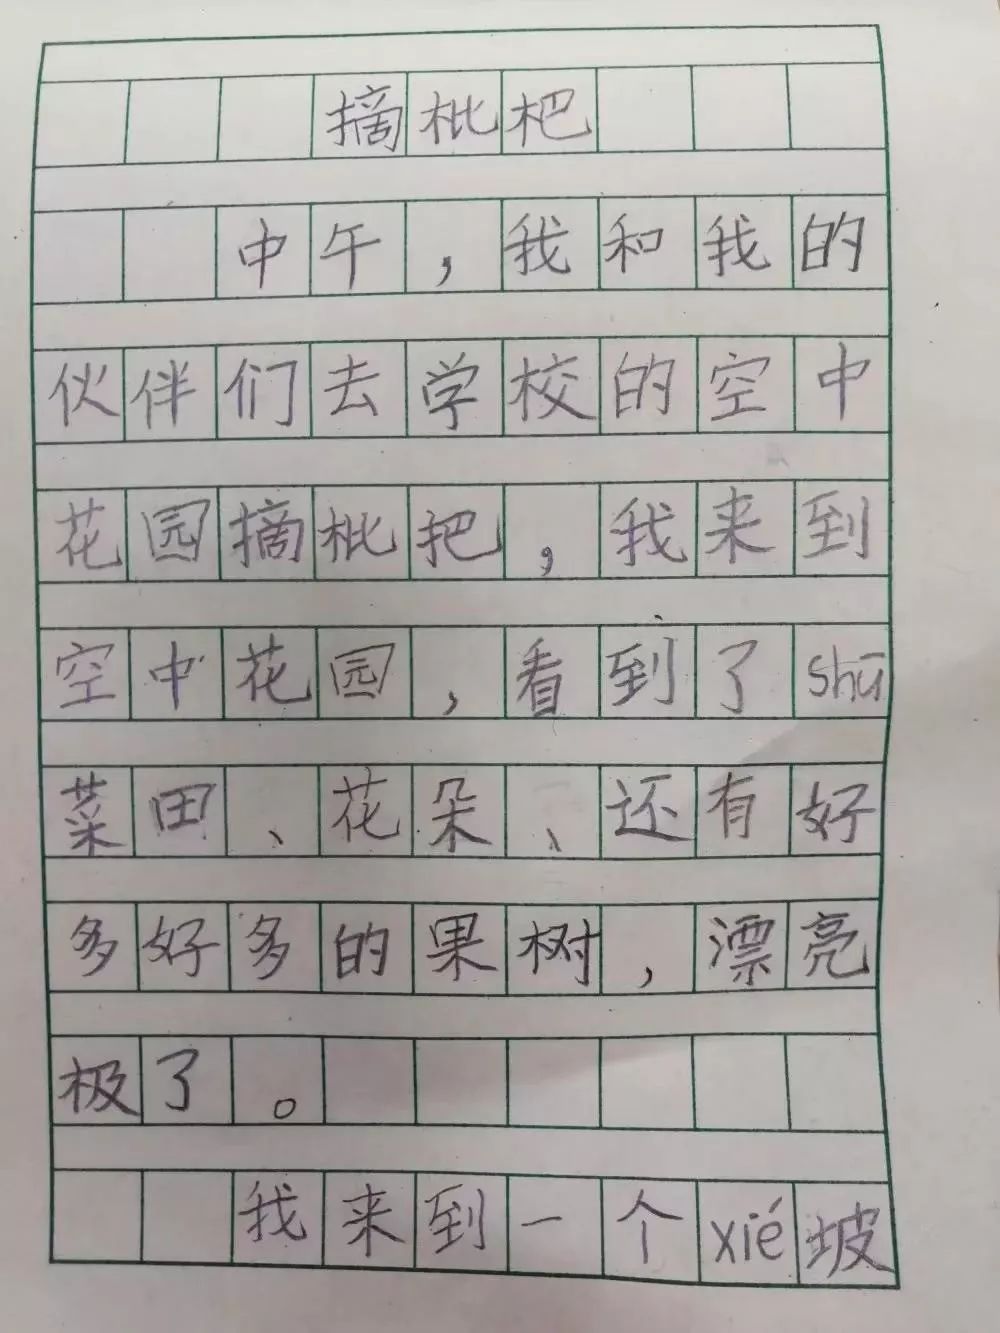 摘枇杷
中午，我和我的
伙伴们去学校的空中
花园摘枇把，我来到
空中花园，看到了shū
菜田、花朵、还有好
多好多的果树，漂亮
极了。
我来到一个xié坡